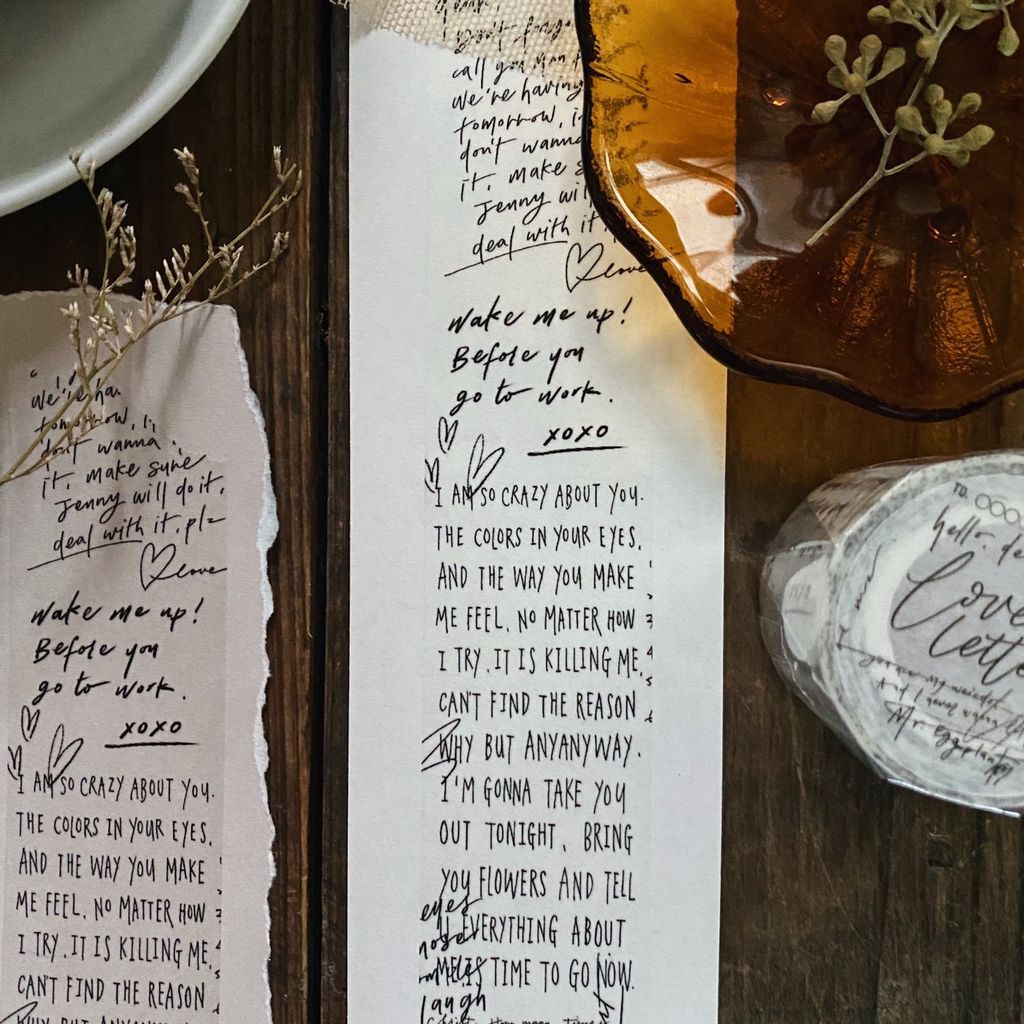 call you mom
we're having
tomorrow, i
don't wanna
it, make s
Jenny wil
deal with it,
love
Wake me up!
Before you
go to work.
xoxo
I AM SO CRAZY ABOUT YOU.
THE COLORS IN YOUR EYES,
AND THE WAY YOU MAKE
ME FEEL, NO MATTER HOW
I TRY, IT IS KILLING ME,
CAN'T FIND THE REASON
WHY BUT ANYANYWAY.
I'M GONNA TAKE YOU
OUT TONIGHT, BRING
YOU FLOWERS AND TELL
EVERYTHING ABOUT
ME. IT'S TIME TO GO NOW.
eyes
nose
laugh
we're ha
tomorrow, i
don't wanna
it, make sure
Jenny will do it,
deal with it, plz
love
Wake me up!
Before you
go to work.
xoxo
I AM SO CRAZY ABOUT YOU.
THE COLORS IN YOUR EYES,
AND THE WAY YOU MAKE
ME FEEL, NO MATTER HOW
I TRY, IT IS KILLING ME,
CAN'T FIND THE REASON
WHY BUT ANYANYWAY.
TO.
hello, de
Love
lette
And I never
Mr. Eggplant